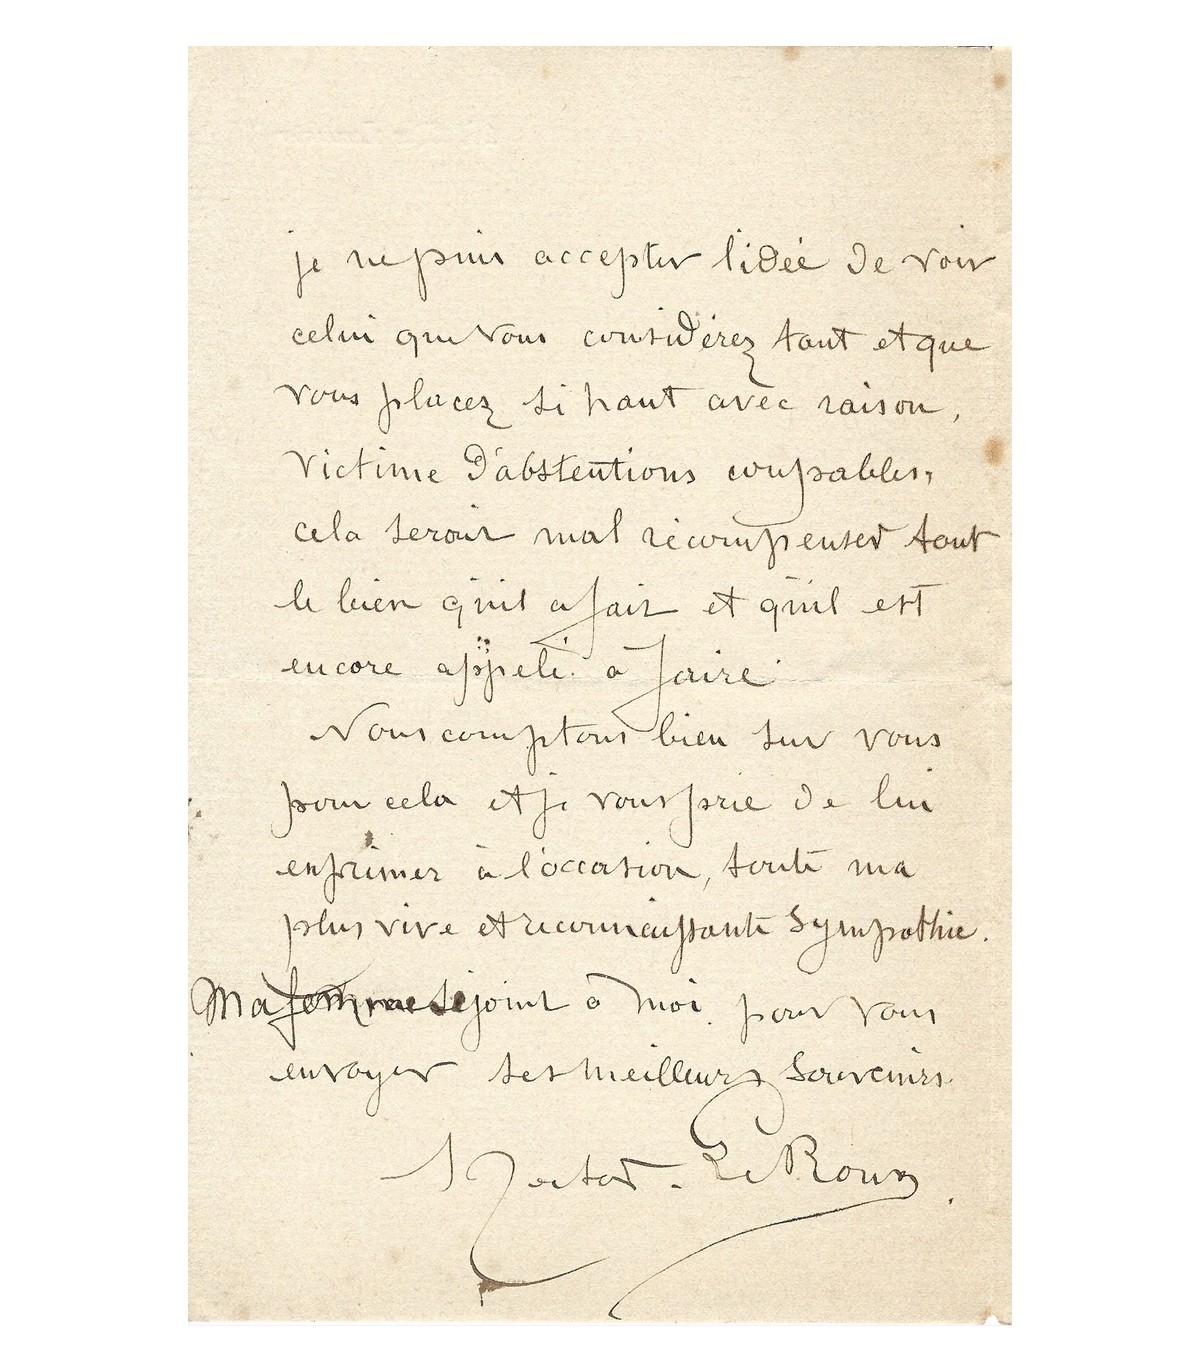 je ne puis accepter l'idée de voir
celui que vous considérez tant et que
vous placez si haut avec raison,
victime d'abstentions coupables,
cela serait mal récompenser tout
le bien qu'il a fait et qu'il est
encore appelé à faire
Nous comptons bien sur vous
pour cela et je vous prie de lui
exprimer à l'occasion, toute ma
plus vive et reconnaissante sympathie.
Ma femme se joint à moi pour vous
envoyer ses meilleurs souvenirs.
Hector Le Roux